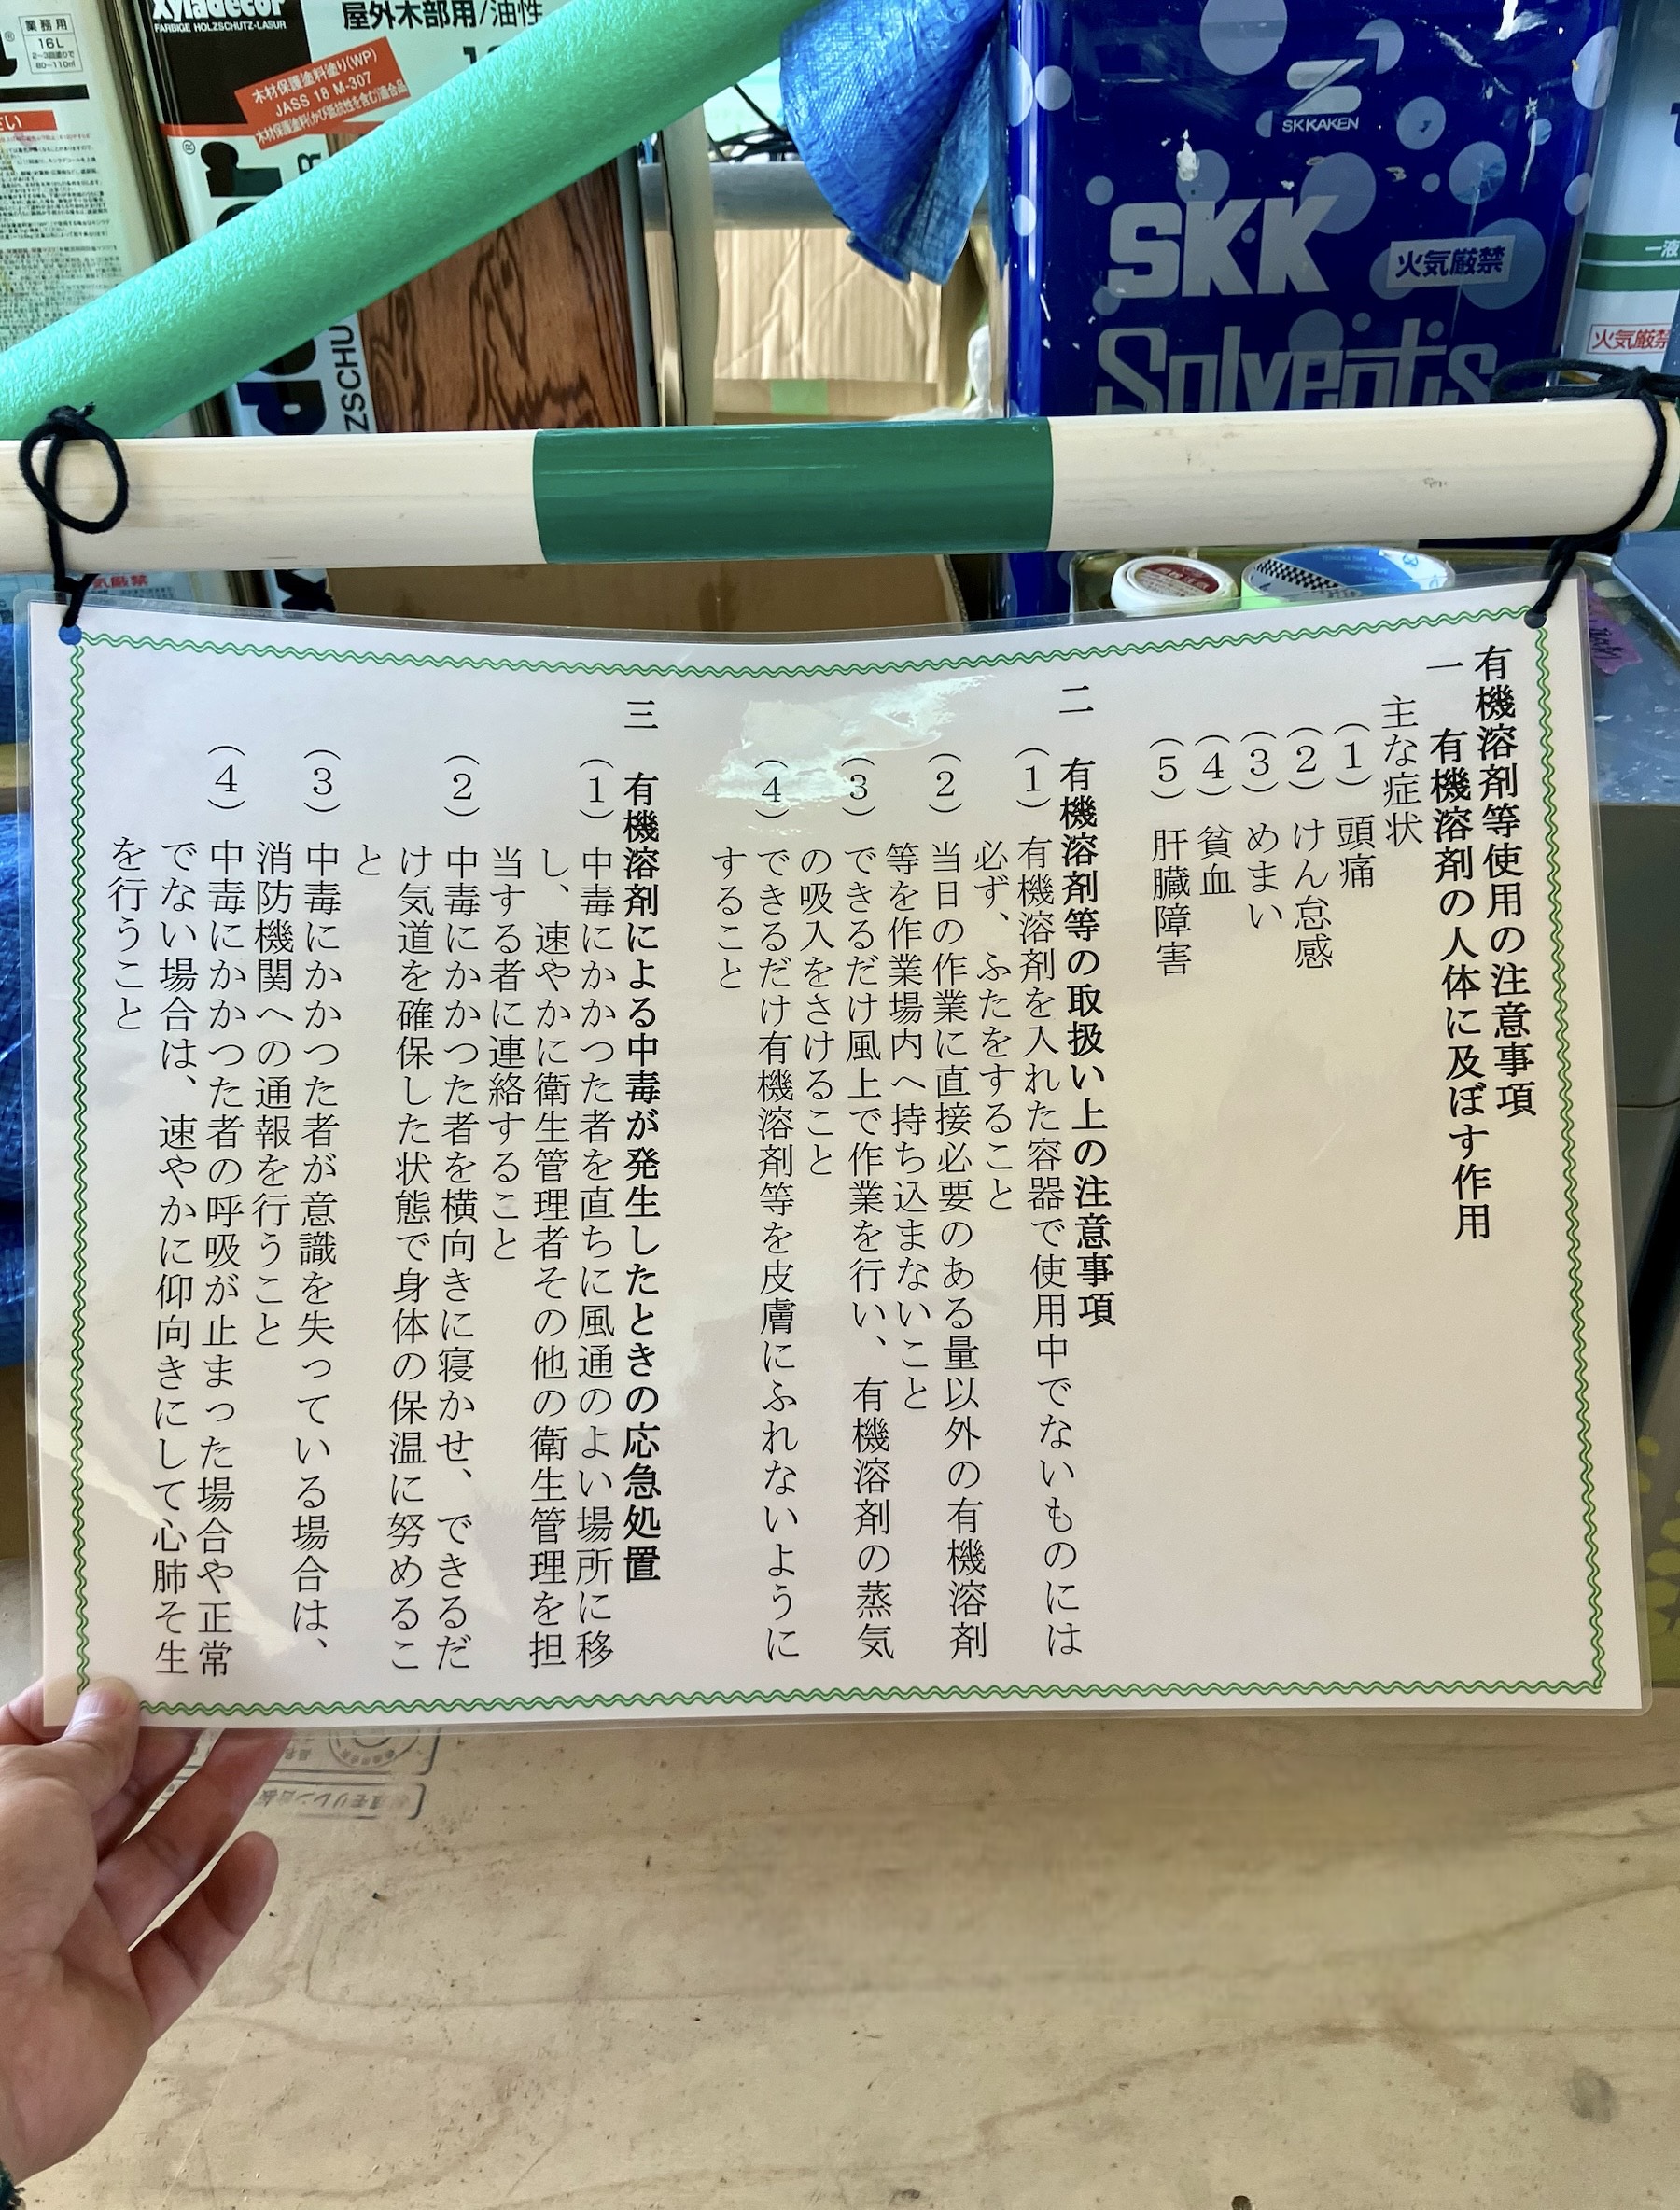 業務用
16L
2~3回塗りで
80~110㎡
Xyladecor
FARBIGE HOLZSCHUTZ-LASUR
屋外木部用/油性
木材保護塗料塗り(WP)
JASS 18 M-307
木材保護塗料(かび抵抗性を含む)適合品
ZSCHU
SK KAKEN
SKK
火気厳禁
Solvents
一液
火気厳禁
火気厳禁
有機溶剤等使用の注意事項
一 有機溶剤の人体に及ぼす作用
主な症状
(1) 頭痛
(2) けん怠感
(3) めまい
(4) 貧血
(5) 肝臓障害
二 有機溶剤等の取扱い上の注意事項
(1) 有機溶剤を入れた容器で使用中でないものには
必ず、ふたをすること
(2) 当日の作業に直接必要のある量以外の有機溶剤
等を作業場内へ持ち込まないこと
(3) できるだけ風上で作業を行い、有機溶剤の蒸気
の吸入をさけること
(4) できるだけ有機溶剤等を皮膚にふれないように
すること
三 有機溶剤による中毒が発生したときの応急処置
(1) 中毒にかかつた者を直ちに風通のよい場所に移
し、速やかに衛生管理者その他の衛生管理を担
当する者に連絡すること
(2) 中毒にかかつた者を横向きに寝かせ、できるだ
け気道を確保した状態で身体の保温に努めるこ
と
(3) 中毒にかかつた者が意識を失っている場合は、
消防機関への通報を行うこと
(4) 中毒にかかつた者の呼吸が止まった場合や正常
でない場合は、速やかに仰向きにして心肺そ生
を行うこと